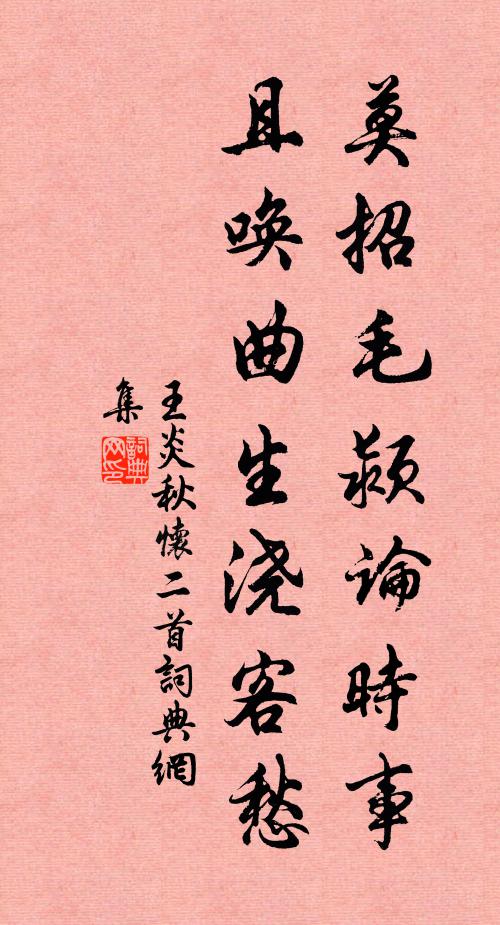 莫招毛颖論時事
且唤曲生浇客愁
王炎秋懷二首詞典網
集
詞典
网印